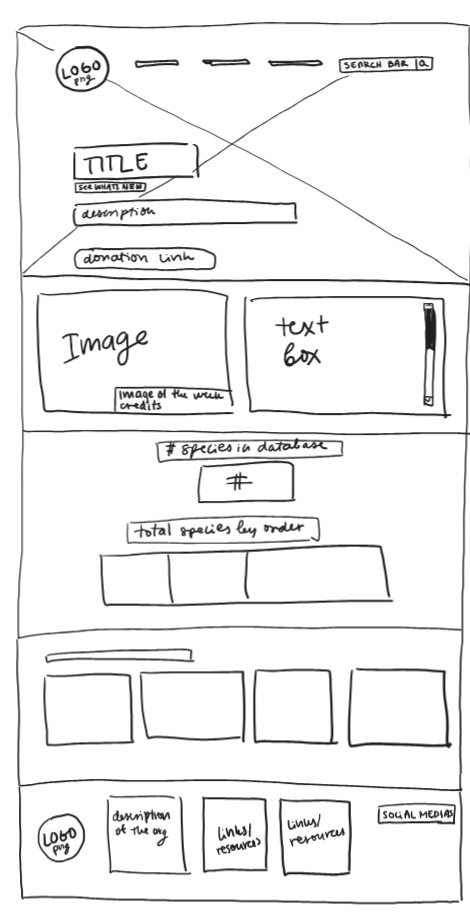 LOGO
png
SEARCH BAR
TITLE
SEE WHATS NEW
description
donation link
Image
Image of the week
credits
text
box
# species in database
#
total species by order
LOGO
png
description
of the org
links/
resources
links/
resources
SOCIAL MEDIAS